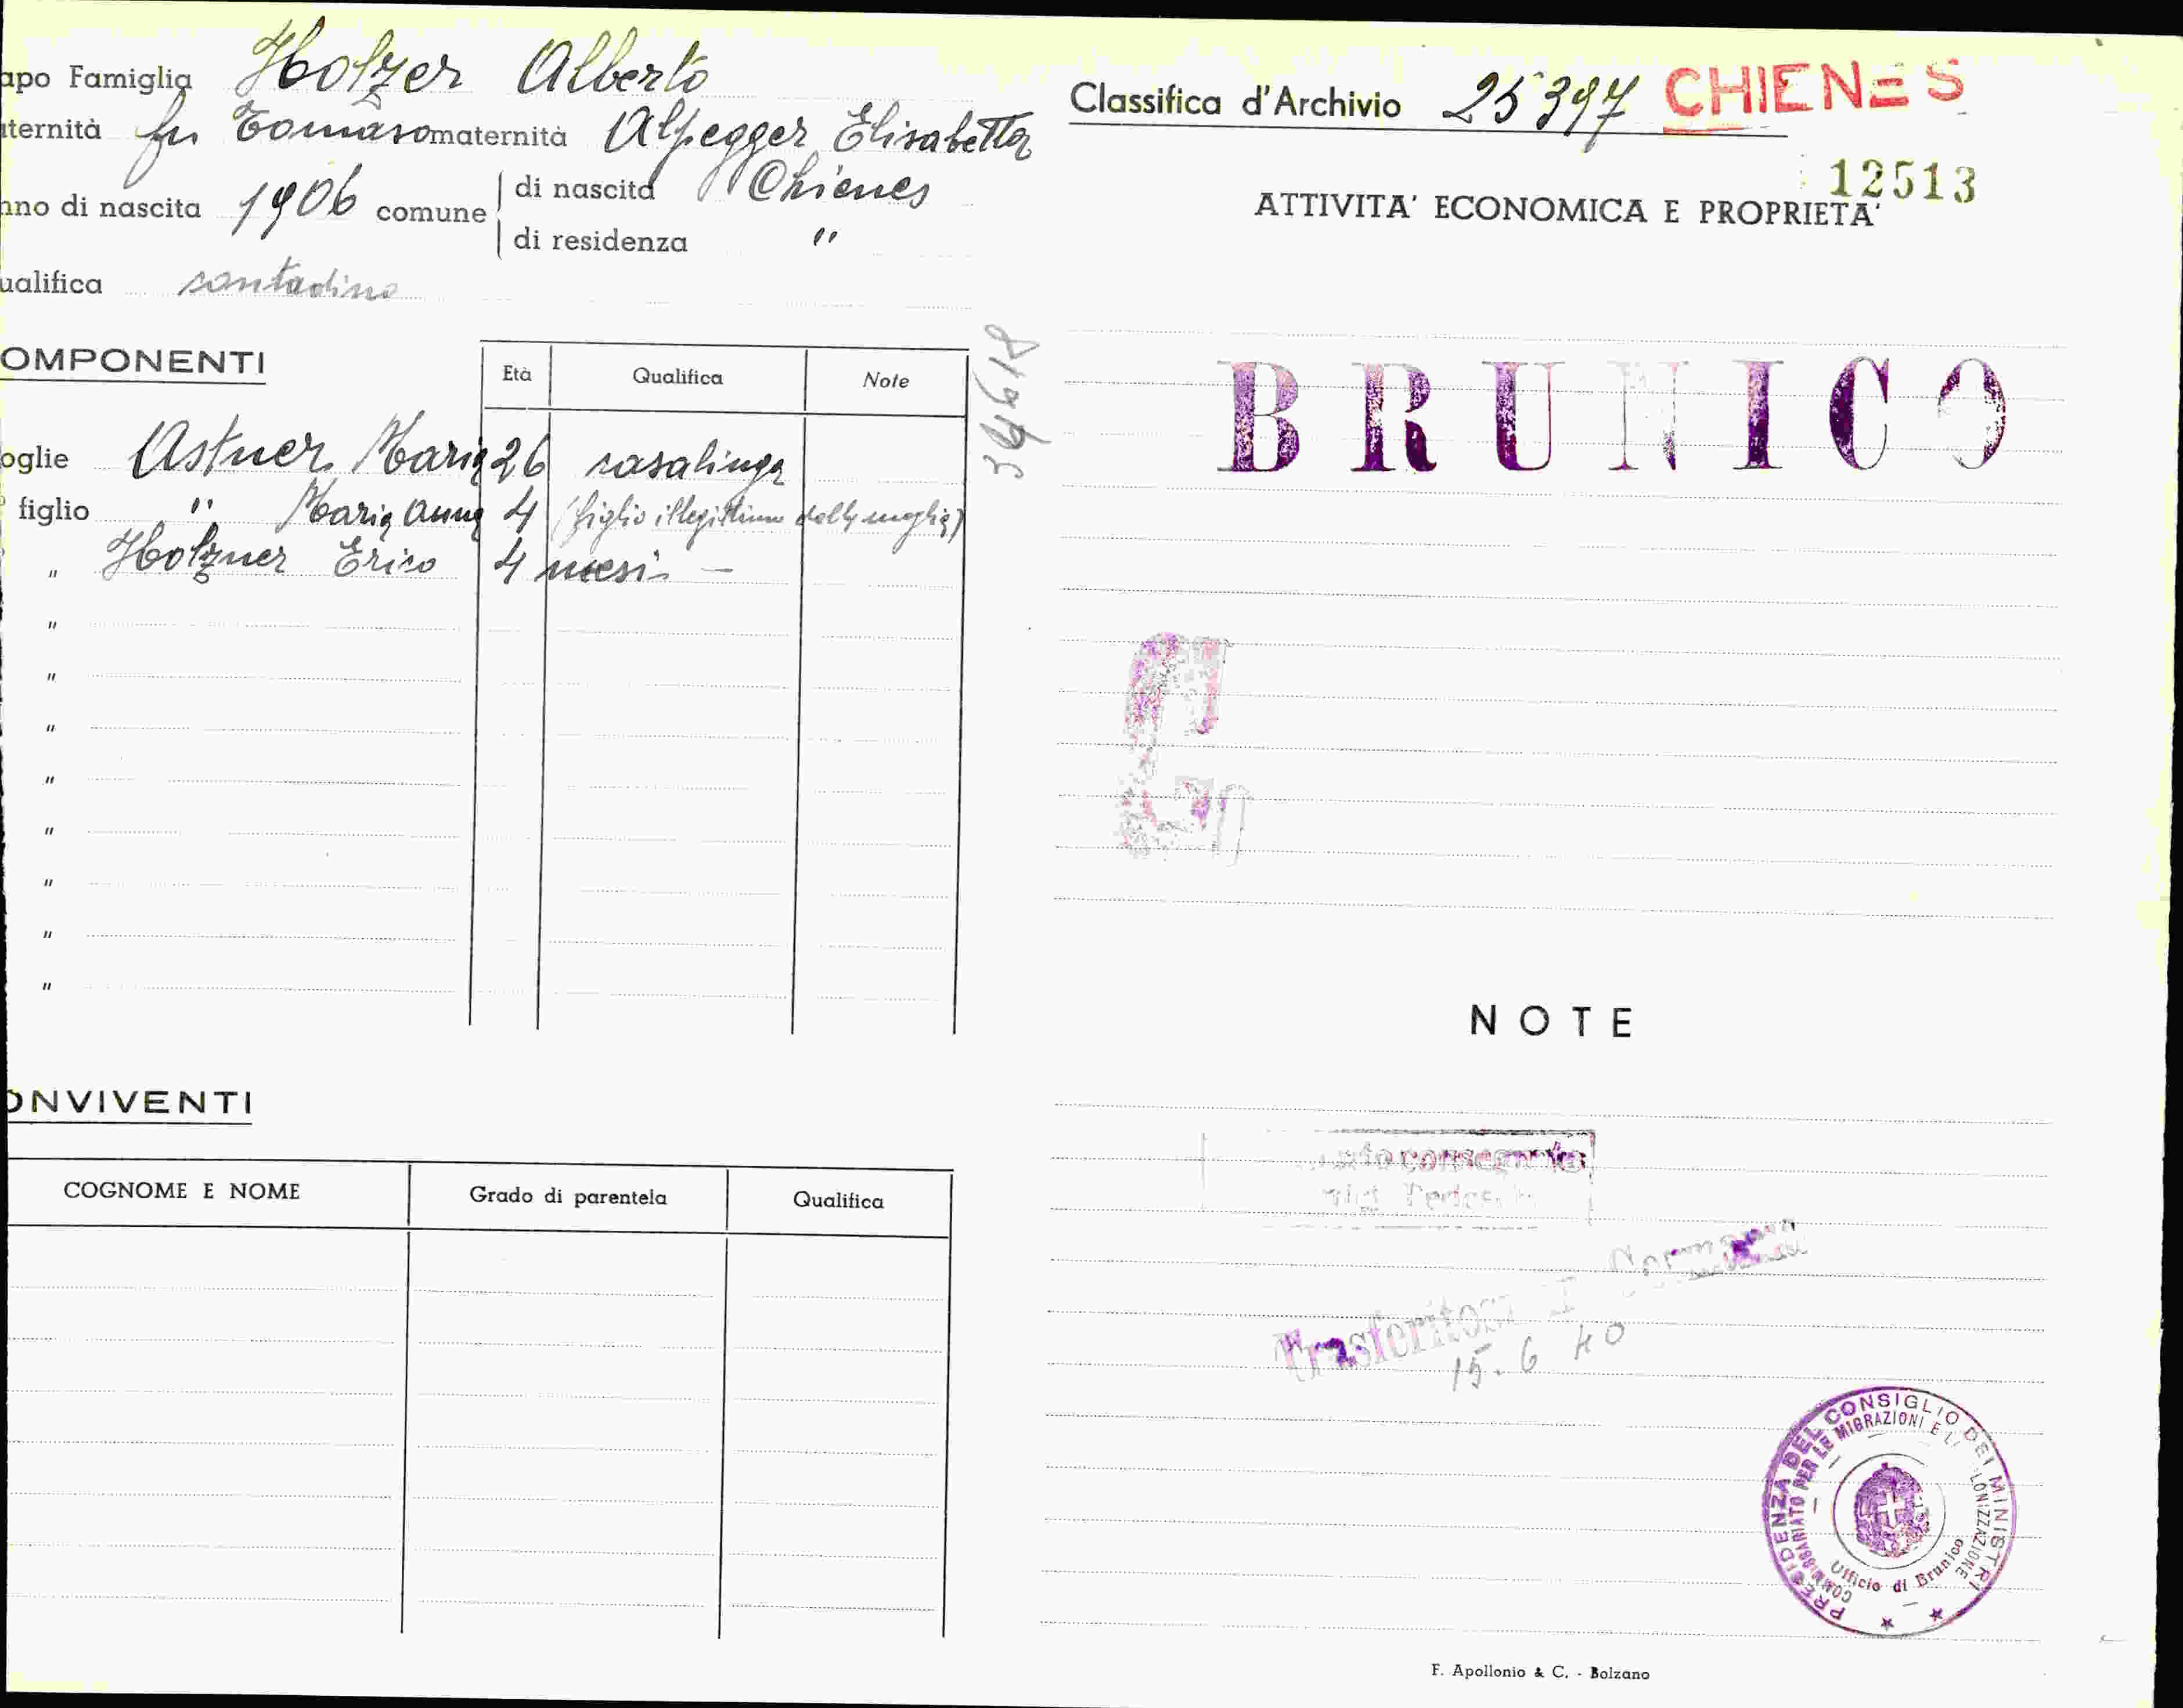 apo Famiglia Holzer Alberto
aternità fu Tomaso maternità Alpegger Elisabetta
nno di nascita 1906 comune di nascita Chienes
di residenza "
ualifica contadino
OMPONENTI
Età Qualifica Note
oglie Astner Maria 26 casalinga
figlio " Maria Anna 4 (figlio illegittimo della moglie)
" Holzner Erico 4 mesi -
"
"
"
"
"
"
"
"
ONVIVENTI
COGNOME E NOME Grado di parentela Qualifica
Classifica d'Archivio 25397 CHIENES
12513
ATTIVITA' ECONOMICA E PROPRIETA'
BRUNICO
NOTE
Trasferitosi
15.6 40
PRESIDENZA DEL CONSIGLIO DEI MINISTRI
COMMISSARIATO PER LE MIGRAZIONI E LONIZZAZIONE
Ufficio di Brunico
F. Apollonio & C. - Bolzano